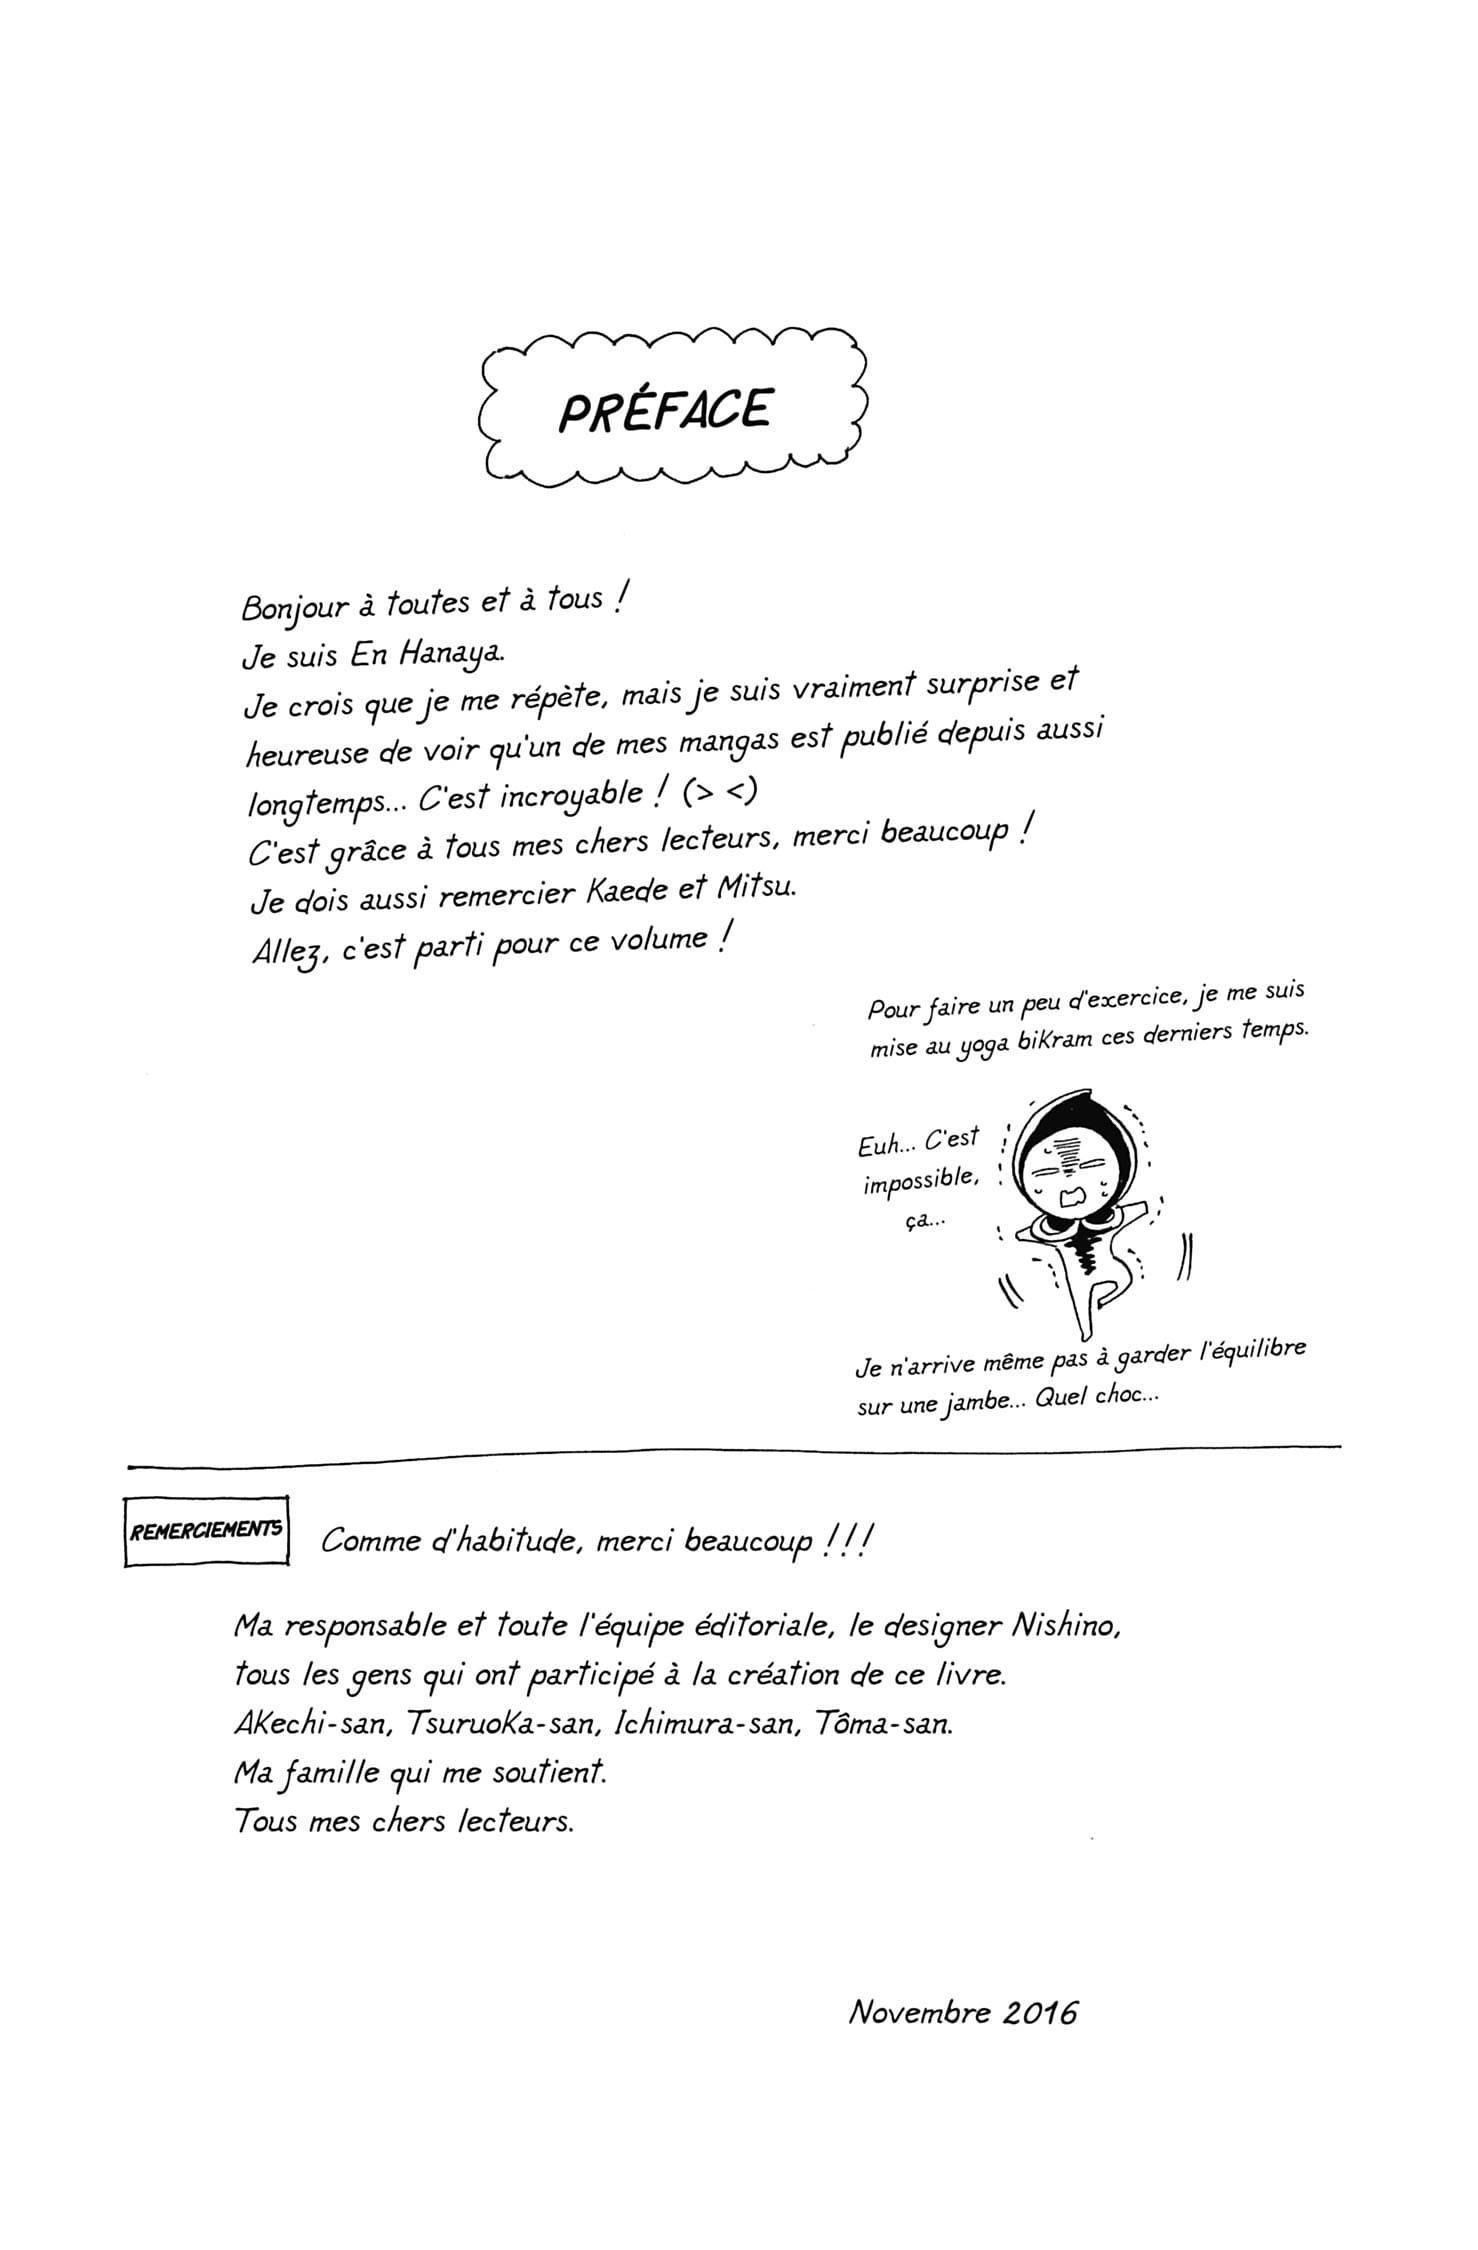 PRÉFACE
Bonjour à toutes et à tous !
Je suis En Hanaya.
Je crois que je me répète, mais je suis vraiment surprise et
heureuse de voir qu'un de mes mangas est publié depuis aussi
longtemps... C'est incroyable ! (> <)
C'est grâce à tous mes chers lecteurs, merci beaucoup !
Je dois aussi remercier Kaede et Mitsu.
Allez, c'est parti pour ce volume !
Pour faire un peu d'exercice, je me suis
mise au yoga bikram ces derniers temps.
Euh... C'est
impossible,
ça...
Je n'arrive même pas à garder l'équilibre
sur une jambe... Quel choc...
REMERCIEMENTS
Comme d'habitude, merci beaucoup !!!
Ma responsable et toute l'équipe éditoriale, le designer Nishino,
tous les gens qui ont participé à la création de ce livre.
Akechi-san, Tsuruoka-san, Ichimura-san, Tôma-san.
Ma famille qui me soutient.
Tous mes chers lecteurs.
Novembre 2016